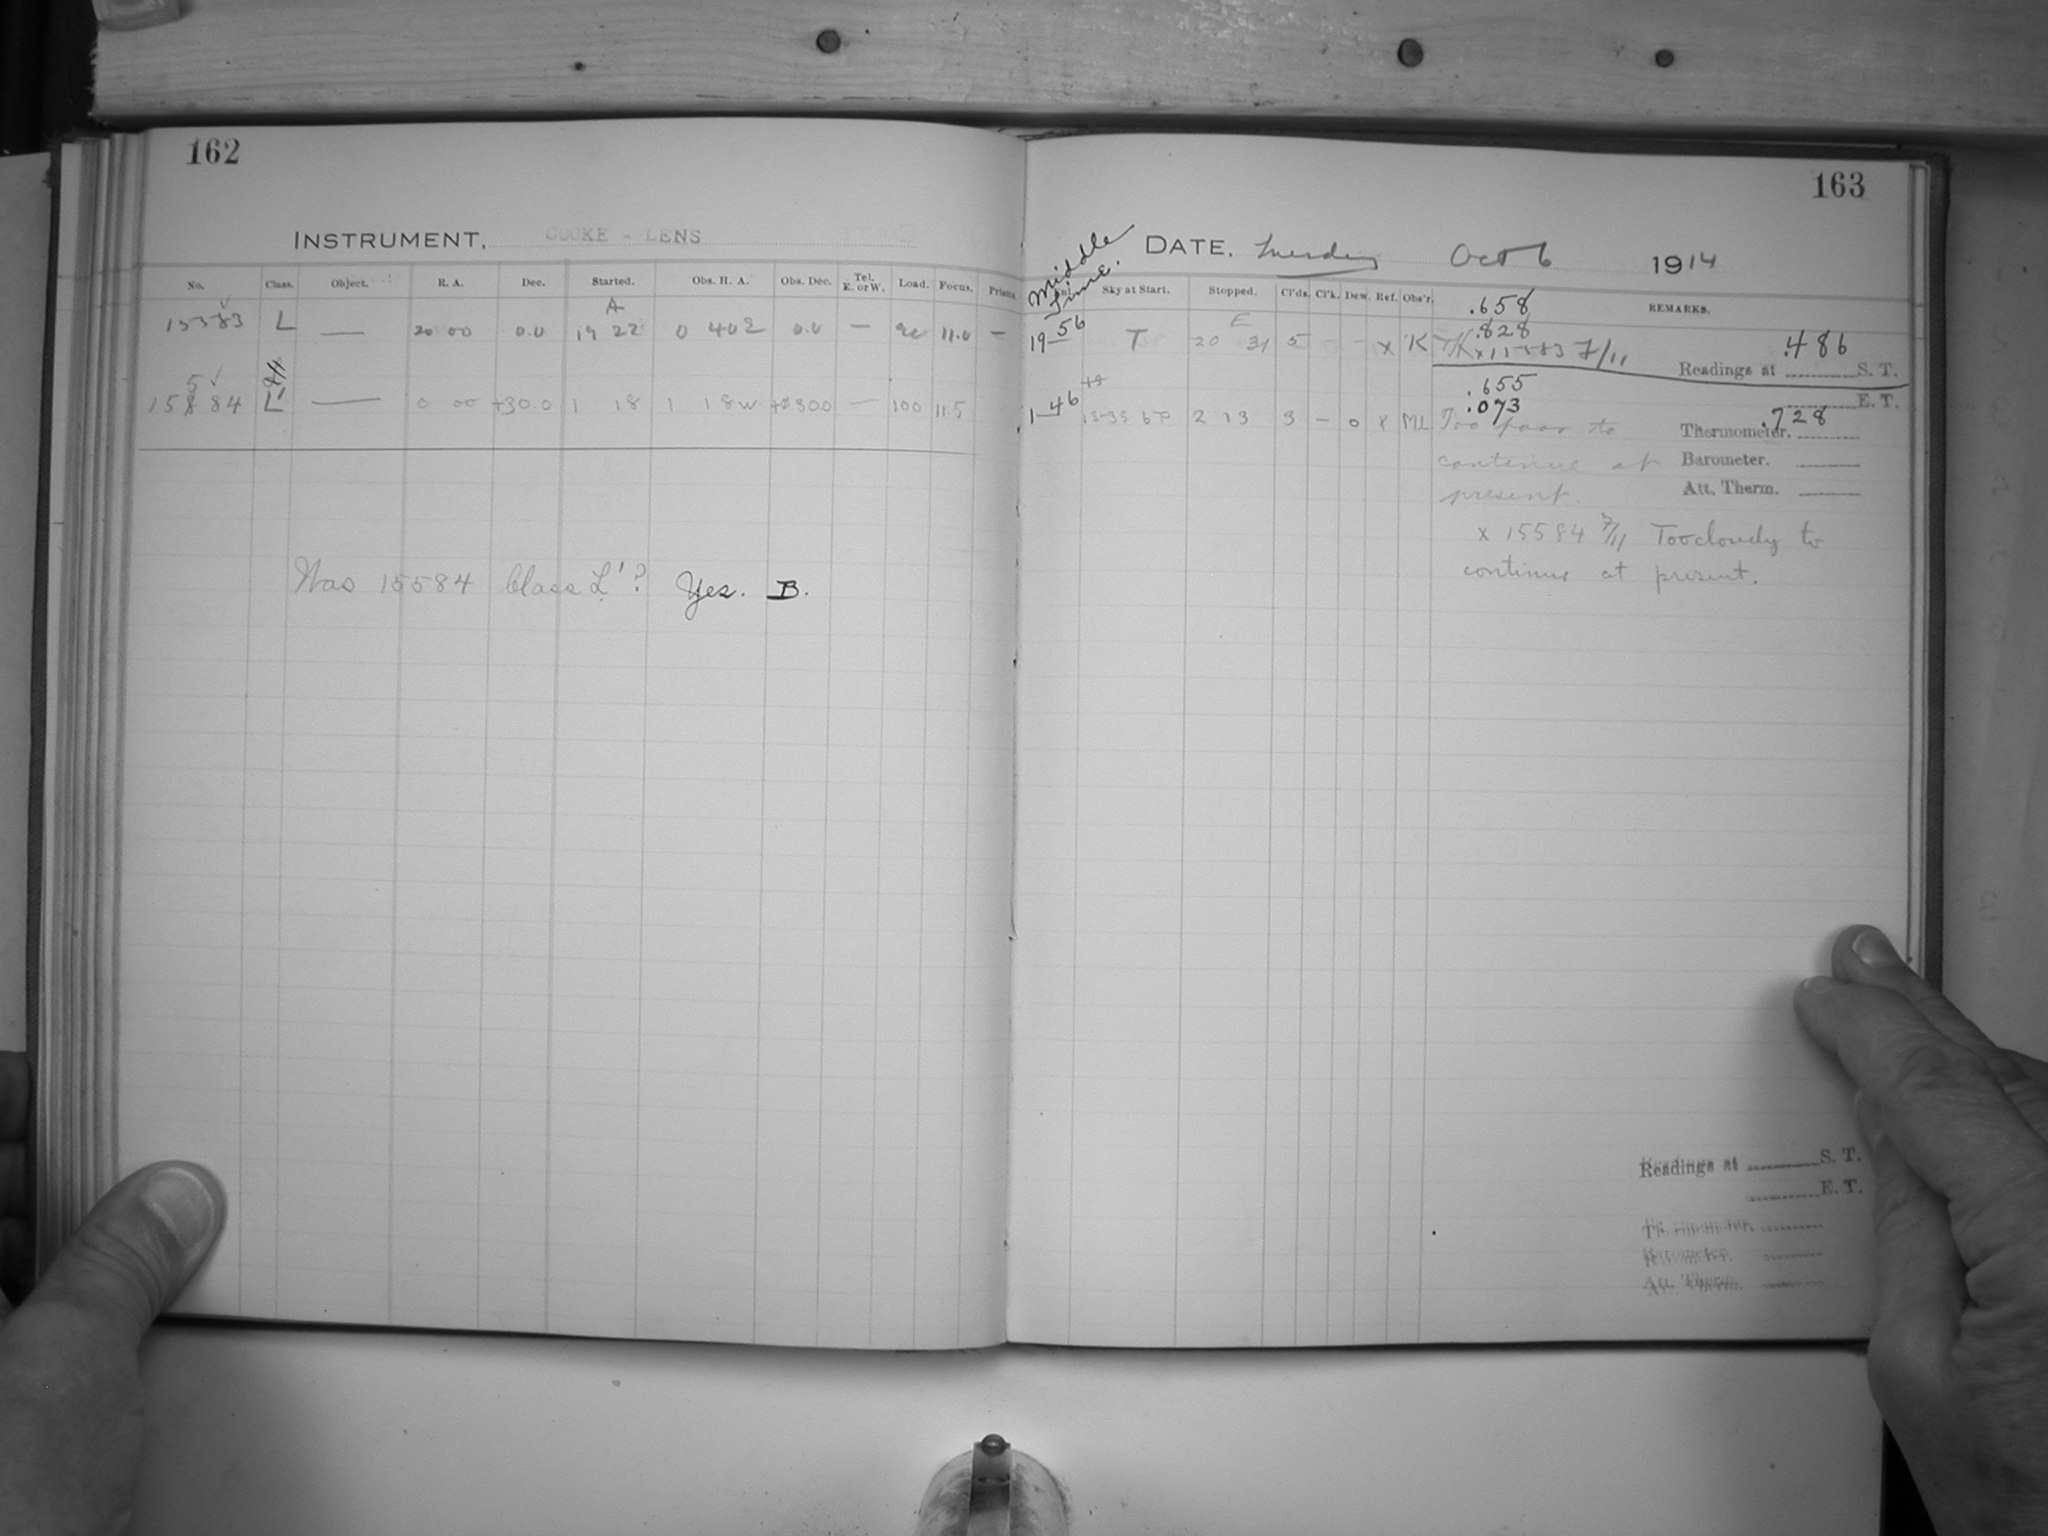 162
INSTRUMENT. COOKE - LENS
No. Class. Object. R. A. Dec. Started. Obs. H. A. Obs. Dec. Tel. E. or W. Load. Focus. Prisms.
A
15583 L — 20 00 0.0 19 22 0 40 E 0.0 — 11.0 —
5
15884 L' — 0 00 +30.0 1 18 1 18 W +300 — 100 11.5
Was 15584 Class L'? Yes. B.
163
Middle Time.
DATE. Tuesday Oct 6 1914
Sky at Start. Stopped. Cl'ds. Cl'k. Dew. Ref. Obs'r. REMARKS.
.658
.828
E
19 56 T 20 31 5 - x K x 15583 7/11
.486
Readings at S. T.
E. T.
.655
.073
1 46 2 13 3 - 0 x ML Too poor to
continue at
present.
.728
Thermometer.
Barometer.
Att. Therm.
x 15584 7/11 Too cloudy to
continue at present.
Readings at S. T.
E. T.
Thermometer.
Barometer.
Att. Therm.